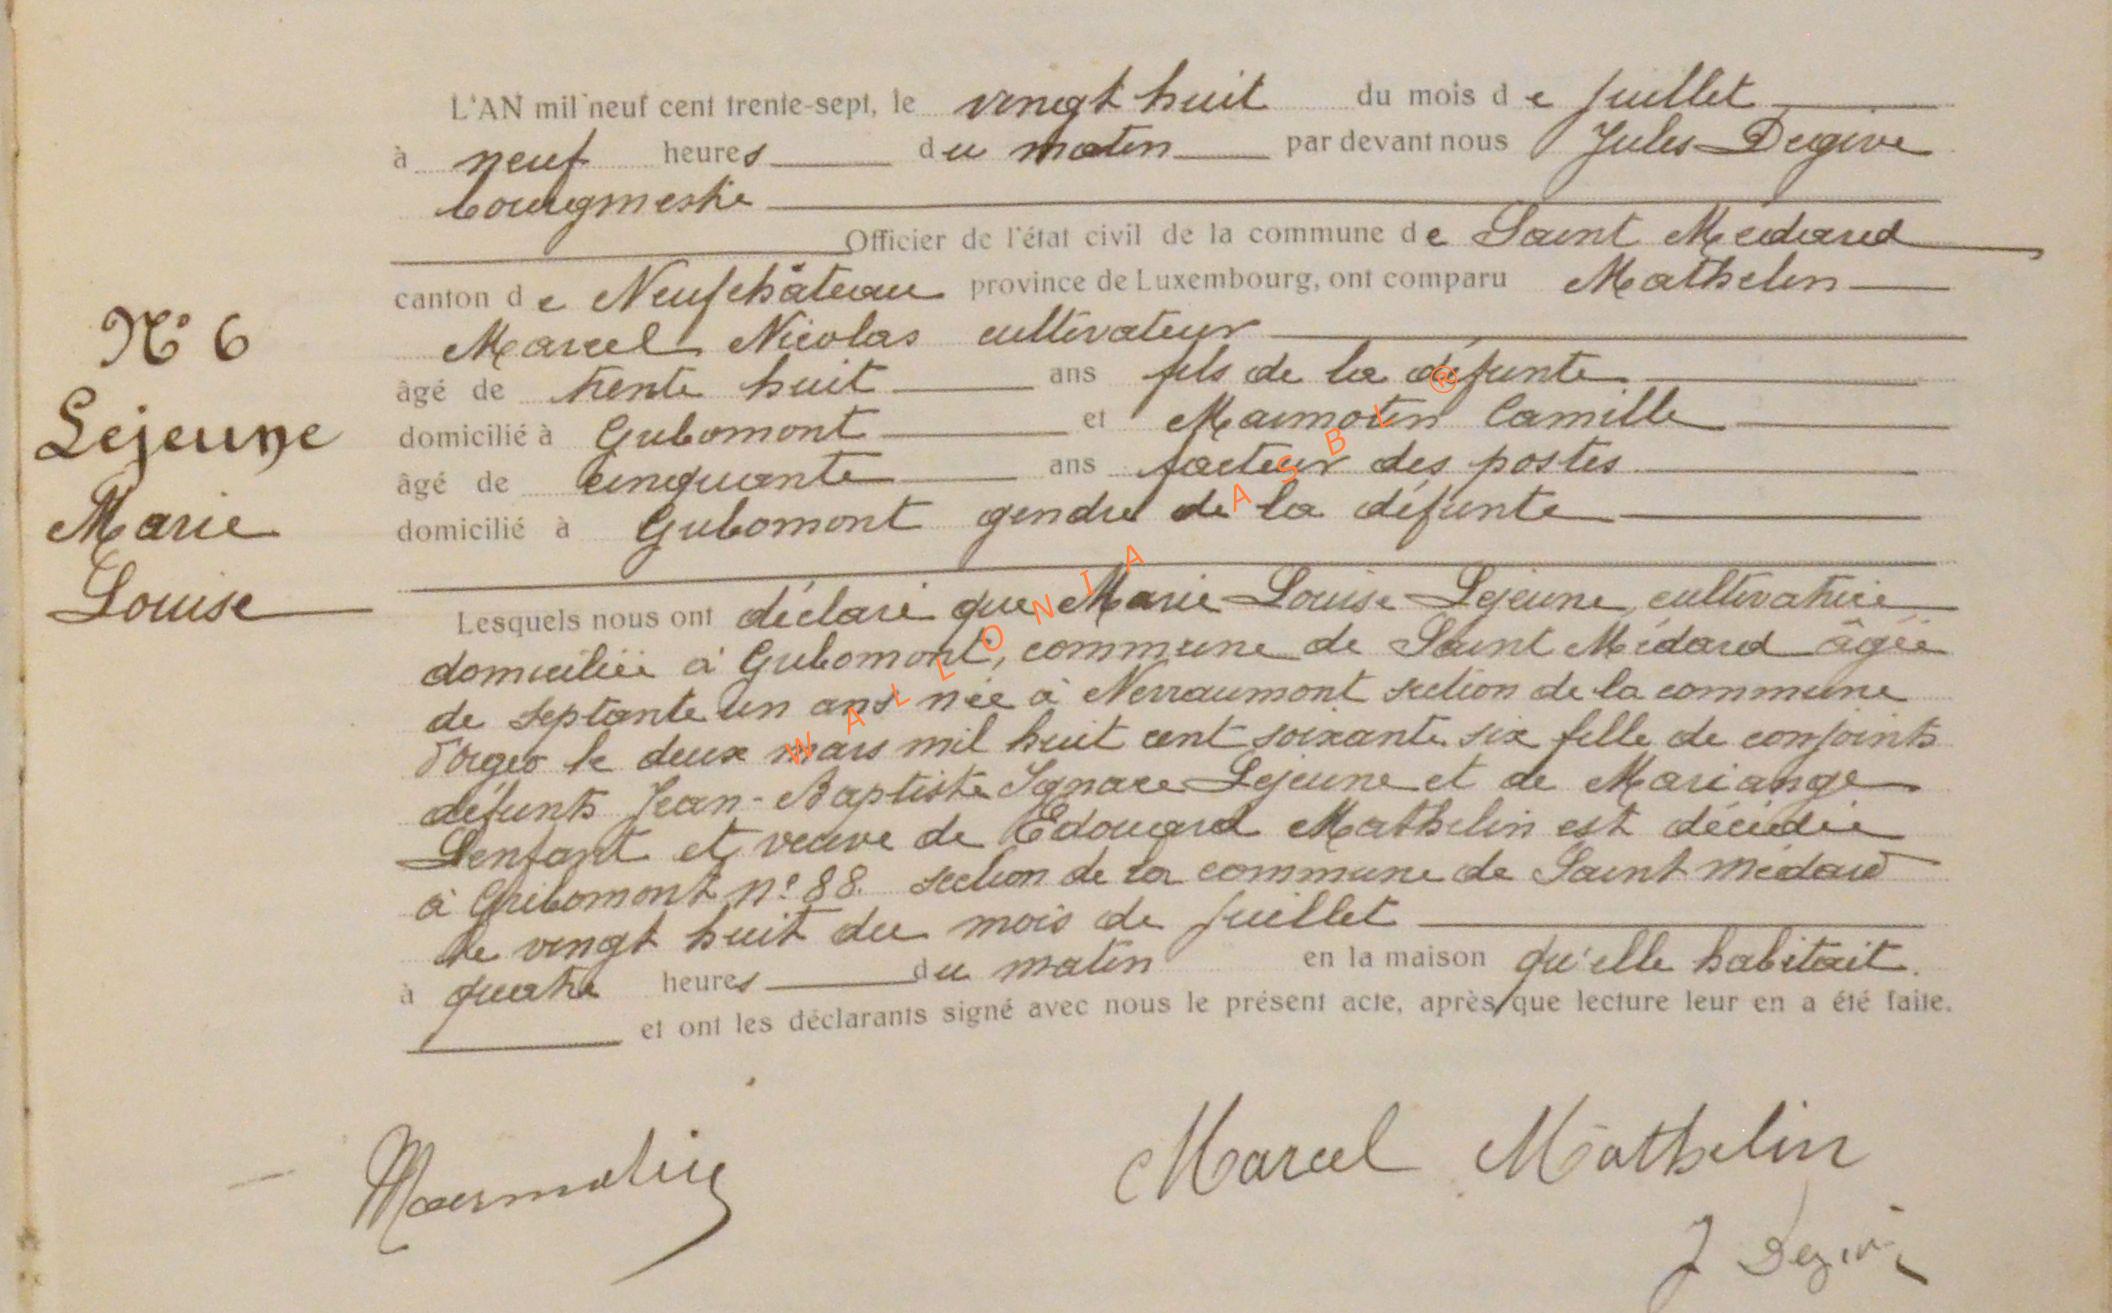 N° 6
Lejeune
Marie
Louise
L'AN mil neuf cent trente-sept, le vingt huit du mois de juillet
à neuf heures du matin par devant nous Jules Degive
bourgmestre
Officier de l'état civil de la commune de Saint Médard
canton de Neufchâteau province de Luxembourg, ont comparu Mathelin
Marcel Nicolas cultivateur
âgé de trente huit ans fils de la défunte
domicilié à Gribomont et Marmotin Camille
âgé de cinquante ans facteur des postes
domicilié à Gribomont gendre de la défunte
Lesquels nous ont déclaré que Marie Louise Lejeune, cultivatrice
domiciliée à Gribomont, commune de Saint Médard âgée
de septante un ans née à Nerraumont section de la commune
d'Orgeo le deux mars mil huit cent soixante six fille de conjoints
défunts Jean-Baptiste Ignace Lejeune et de Mariange
Lenfant et veuve de Edouard Mathelin est décédée
à Gribomont n° 88. section de la commune de Saint Médard
le vingt huit du mois de juillet
à quatre heures du matin en la maison qu'elle habitait.
et ont les déclarants signé avec nous le présent acte, après que lecture leur en a été faite.
Marmotin
Marcel Mathelin
J Degive
WALLONIA ASBL ®